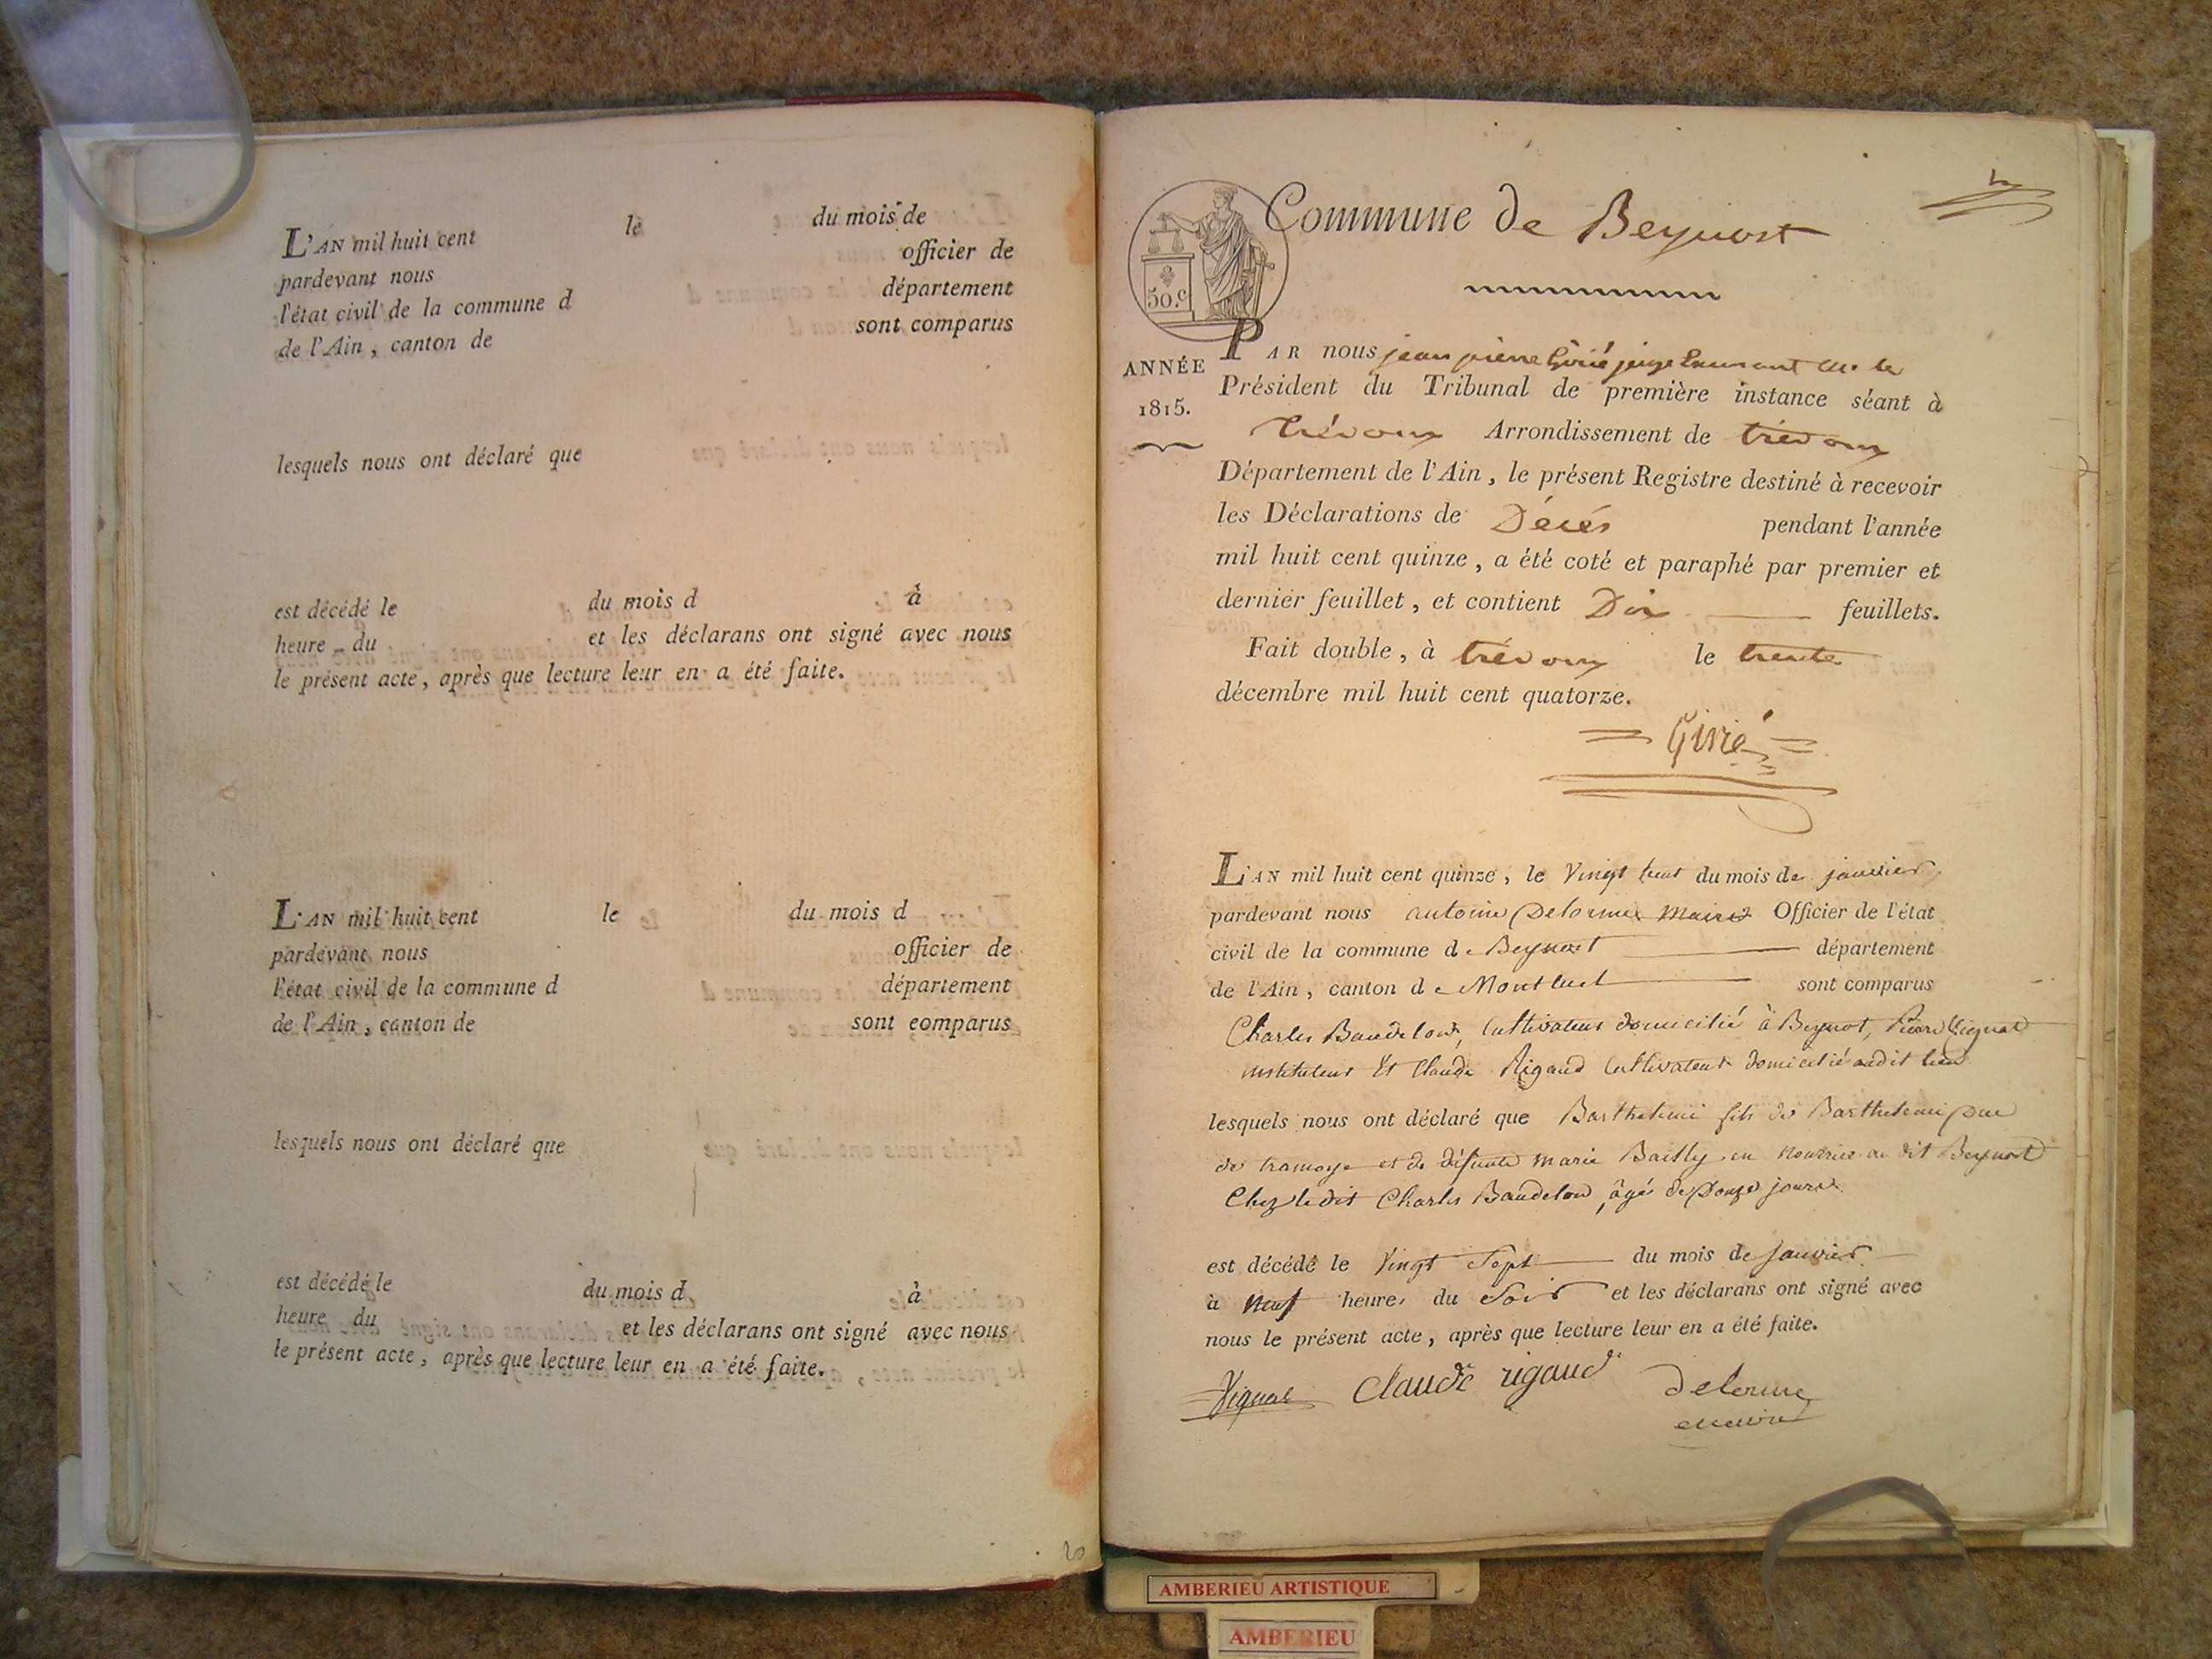 L'AN mil huit cent le du mois de
pardevant nous officier de
l'état civil de la commune d département
de l'Ain, canton de sont comparus
lesquels nous ont déclaré que
est décédé le du mois d à
heure du et les déclarans ont signé avec nous
le présent acte, après que lecture leur en a été faite.
L'AN mil huit cent le du mois d
pardevant nous officier de
l'état civil de la commune d département
de l'Ain, canton de sont comparus
lesquels nous ont déclaré que
est décédé le du mois d à
heure du et les déclarans ont signé avec nous
le présent acte, après que lecture leur en a été faite.
Commune de Beynost
50.c
ANNÉE
1815.
PAR nous jean pierre juge
Président du Tribunal de première instance séant à
trévoux Arrondissement de trévoux
Département de l'Ain, le présent Registre destiné à recevoir
les Déclarations de Décés pendant l'année
mil huit cent quinze, a été coté et paraphé par premier et
dernier feuillet, et contient Dix feuillets.
Fait double, à trévoux le trente
décembre mil huit cent quatorze.
L'AN mil huit cent quinze, le Vingt huit du mois de janvier,
pardevant nous antoine Delorme Maire Officier de l'état
civil de la commune de Beynost département
de l'Ain, canton de Montluel sont comparus
Charles Baudelou, Cultivateur domicilié à Beynost, Pierre Vignal
instituteur Et Claude Rigaud Cultivateur domicilié audit lieu
lesquels nous ont déclaré que Barthelemi fils de Barthelemi
de tramoye et de défunte marie Bailly en nourrice au dit Beynost
Chez le dit Charles Baudelou, âgé de Douze jours
est décédé le Vingt Sept du mois de Janvier
à neuf heures du Soir et les déclarans ont signé avec
nous le présent acte, après que lecture leur en a été faite.
Vignal Claude rigaud delorme
maire
AMBERIEU ARTISTIQUE
AMBERIEU